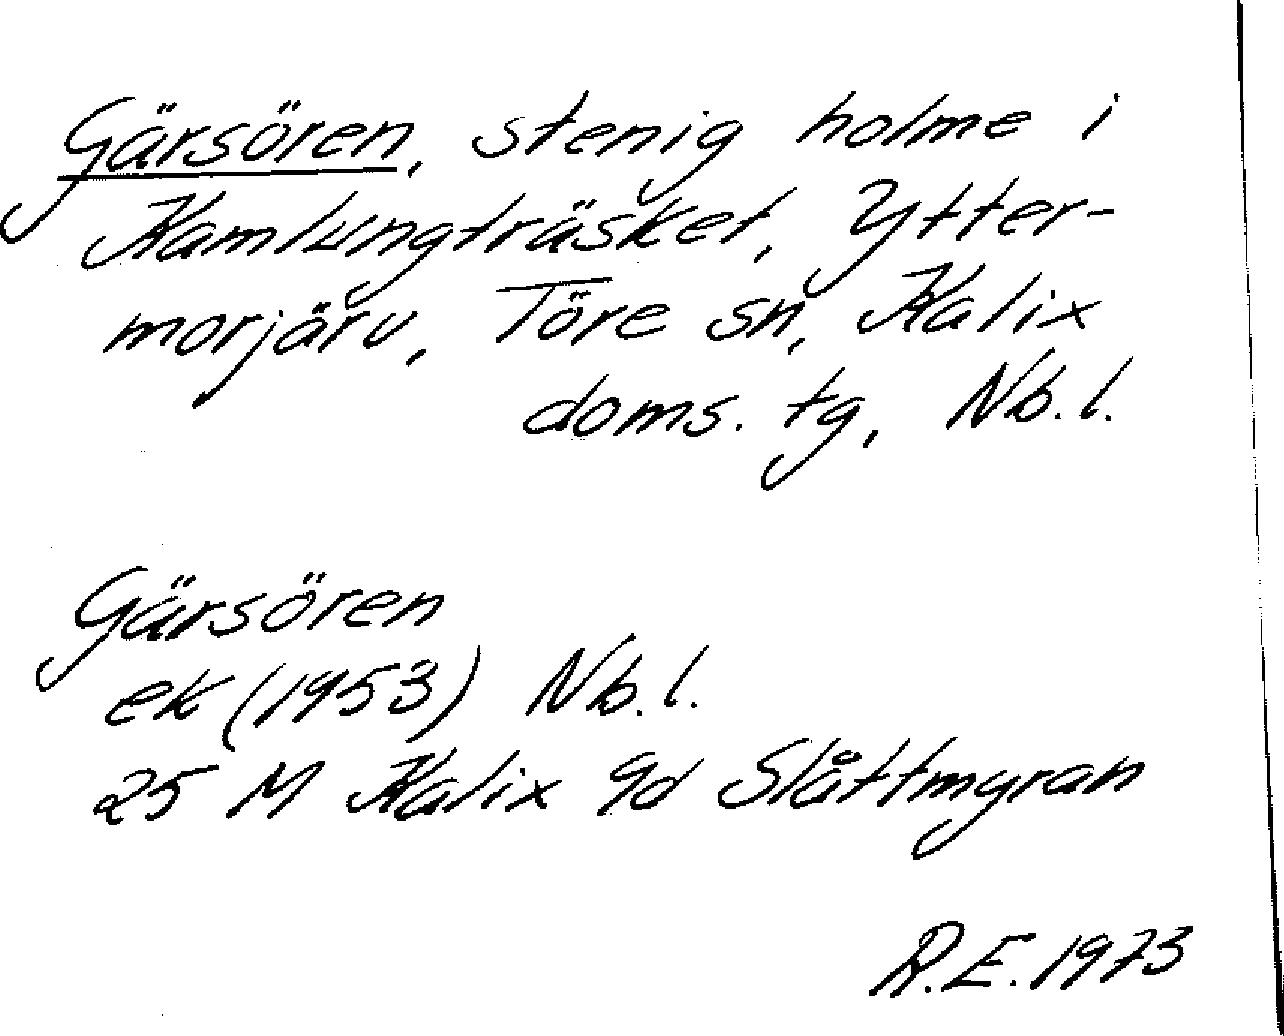 Gärsören, stenig holme i
Kamlungträsket, Ytter-
morjärv, Töre sn, Kalix
doms. tg, Nb.l.
Gärsören
ek (1953) Nb.l.
25 M Kalix 9d Slåttmyran
R.E. 1973